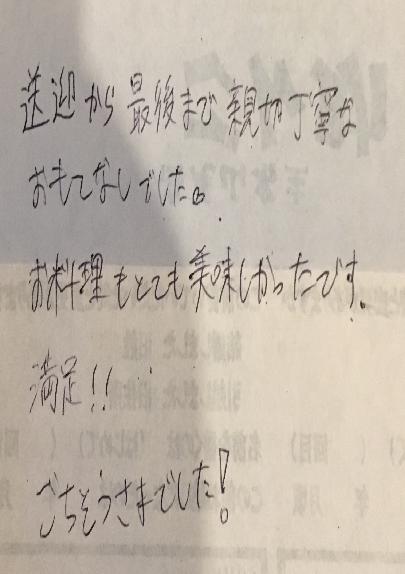 送迎から最後まで親切丁寧な
おもてなしでした。
お料理もとても美味しかったです。
満足!!
ごちそうさまでした!